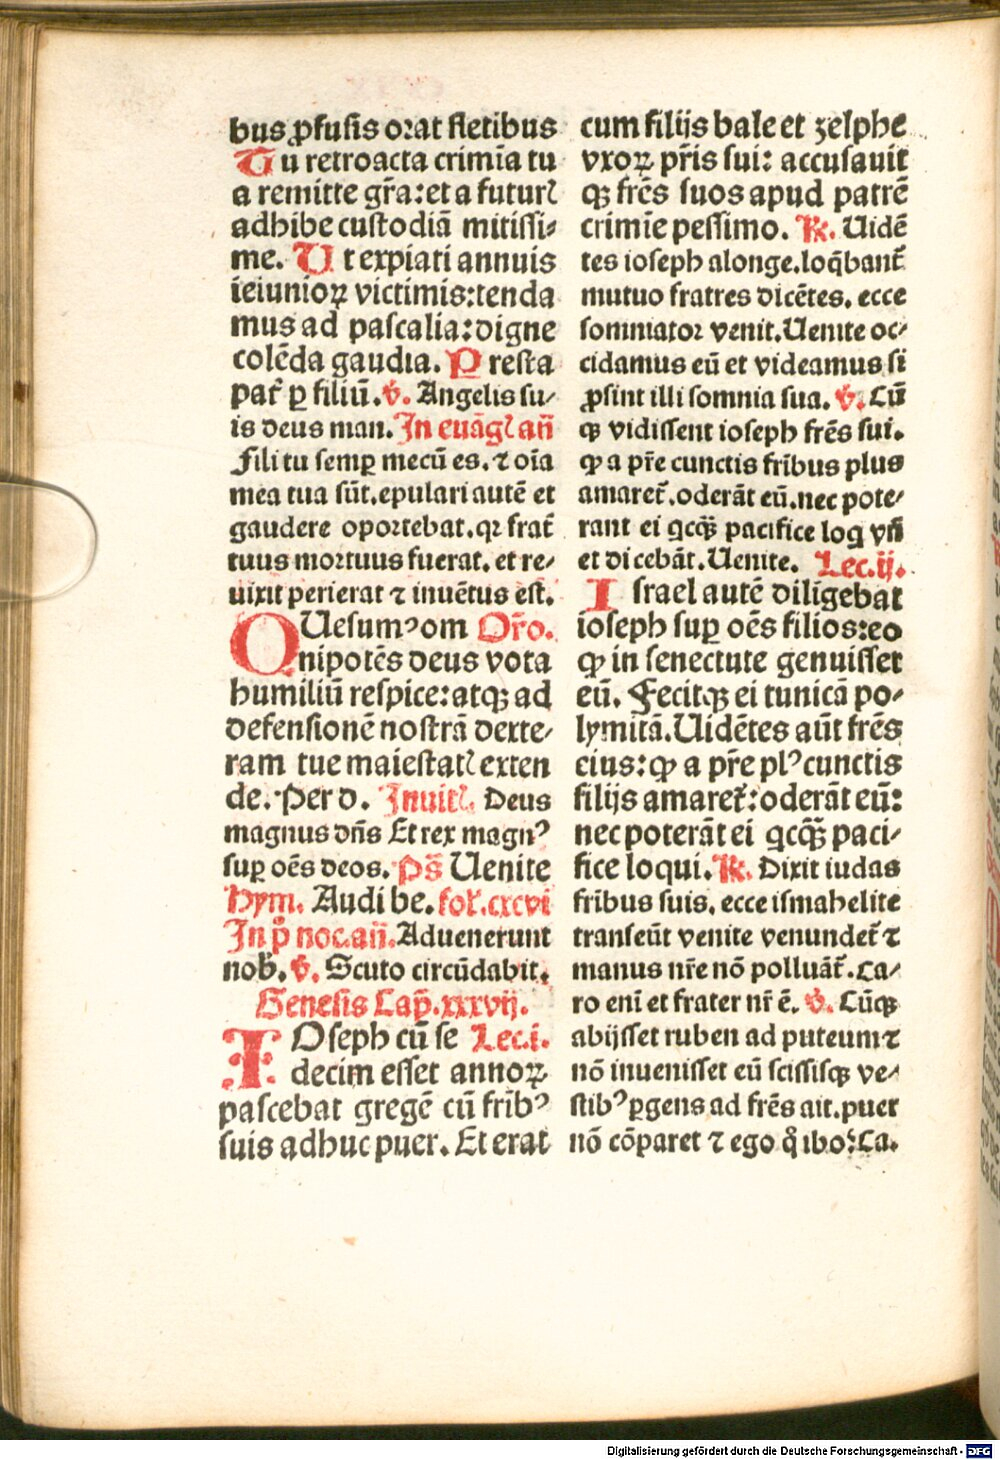 bus ꝓfusis orat fletibus
Tu retroacta crimīa tu
a remitte gr̄a: et a futurꝭ
adhibe custodiā mitissi⸗
me. Ut expiati annuis
ieiunioꝝ victimis: tenda
mus ad pascalia: digne
colēda gaudia. Presta
pat̄ ꝑ filiū. ꝟ. Angelis su⸗
is deus man. In euāgꝭ an̄
Fili tu semꝑ mecū es. ⁊ oīa
mea tua sūt. epulari autē et
gaudere oportebat. qꝛ frat̄
tuus mortuus fuerat. et re⸗
uixit perierat ⁊ inuētus est.
QUesumꝰ om Or̄o.
nipotēs deus vota
humiliū respice: atqꝫ ad
defensionē nostrā dexte⸗
ram tue maiestatꝭ exten
de. Per d. Inuitꝭ. Deus
magnus dn̄s Et rex magnꝰ
suꝑ oēs deos. Ps̄ Uenite
Hym. Audi be. fol̄. cxcvi
In p̄ noc. an̄. Aduenerunt
nob̄. ꝟ. Scuto circūdabit.
Genesis Cap̄. xxxvij.
IOseph cū se Lec. i.
decim esset annoꝝ
pascebat gregē cū fribꝰ
suis adhuc puer. Et erat
cum filijs bale et zelphe
vxoꝝ pr̄is sui: accusauit
qꝫ fr̄es suos apud patrē
crimīe pessimo. ℟. Uidē
tes ioseph alonge. loq̄bant̄
mutuo fratres dicētes. ecce
somniator venit. Uenite oc⸗
cidamus eū et videamus si
ꝓsint illi somnia sua. ꝟ. Cū
qꝫ vidissent ioseph fr̄es sui.
ꝙ a pr̄e cunctis fr̄ibus plus
amaret̄. oderāt eū. nec pote⸗
rant ei qcqꝫ̄ pacifice loq vn̄
et dicebāt. Uenite. Lec. ij.
Israel autē diligebat
ioseph suꝑ oēs filios: eo
ꝙ in senectute genuisset
eū. Fecitqꝫ ei tunicā po⸗
lymitā. Uidētes aūt fr̄es
eius: ꝙ a pr̄e plꝰ cunctis
filijs amaret̄: oderāt eū:
nec poterāt ei qcqꝫ̄ paci⸗
fice loqui. ℟. Dixit iudas
fr̄ibus suis. ecce ismahelite
transeūt venite venundet̄ ⁊
manus nr̄e nō polluāt̄. Ca⸗
ro enī et frater nr̄ ē. ꝟ. Cūqꝫ
abijsset ruben ad puteum ⁊
nō inuenisset eū scissisqꝫ ve⸗
stibꝰ ꝑgens ad fr̄es ait. puer
nō cōparet ⁊ ego q̊ ibo: Ca.
Digitalisierung gefördert durch die Deutsche Forschungsgemeinschaft - DFG